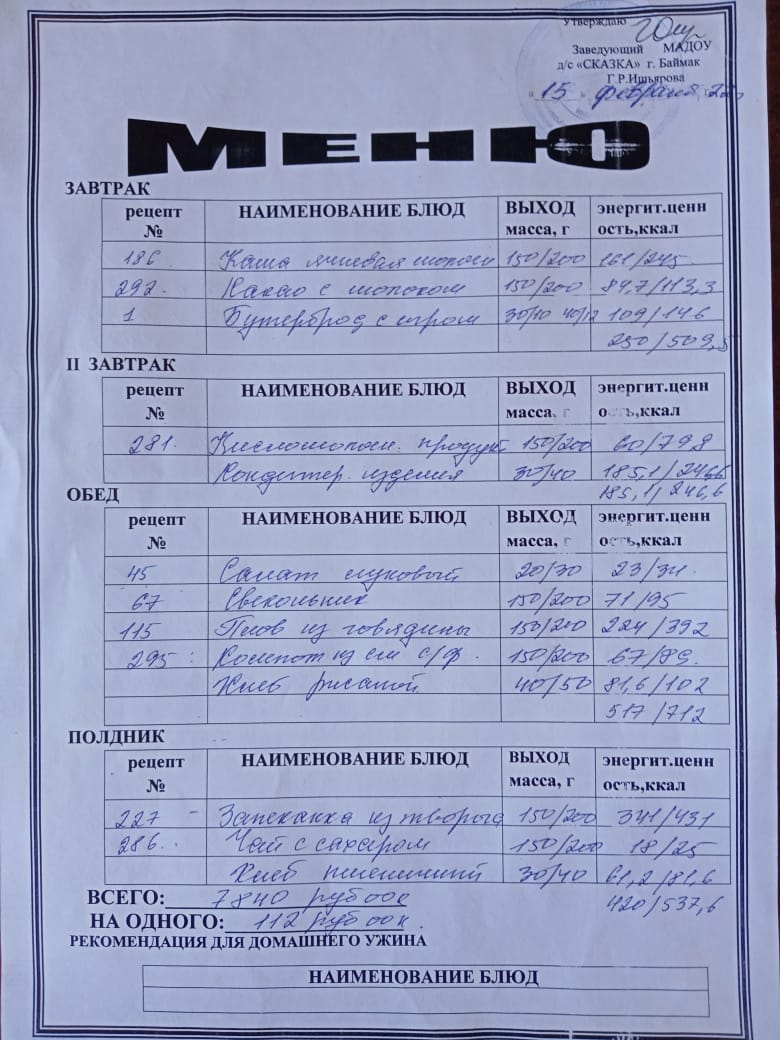 Утверждаю
Заведующий МАДОУ
д/с «СКАЗКА» г. Баймак
Г.Р.Ишьярова
« 15 » февраля
МЕНЮ
ЗАВТРАК
рецепт № НАИМЕНОВАНИЕ БЛЮД ВЫХОД масса, г энергит.ценн ость,ккал
186 Каша ячневая молочн 150/200 161/245
292. Какао с молоком 150/200 84,7/113,3
1 Бутерброд с сыром 30/10 40/12 109/146
250/509,5
II ЗАВТРАК
рецепт № НАИМЕНОВАНИЕ БЛЮД ВЫХОД масса, г энергит.ценн ость,ккал
281. Кисломолочн. продукт 150/200 60/79,8
Кондитер. изделия 30/40 185,1/246,6
185,1/246,6
ОБЕД
рецепт № НАИМЕНОВАНИЕ БЛЮД ВЫХОД масса, г энергит.ценн ость,ккал
45 Салат луковый 20/30 23/34.
67 Свекольник 150/200 71/95
115 Плов из говядины 150/200 224/392
295 Компот из см с/ф. 150/200 67/89.
Хлеб ржаной 40/50 81,6/102
517/712
ПОЛДНИК
рецепт № НАИМЕНОВАНИЕ БЛЮД ВЫХОД масса, г энергит.ценн ость,ккал
227 Запеканка из творога 150/200 341/431
286. Чай с сахаром 150/200 18/25
Хлеб пшеничный 30/40 61,2/81,6
ВСЕГО: 7840 руб 00к
420/537,6
НА ОДНОГО: 112 руб 00к.
РЕКОМЕНДАЦИЯ ДЛЯ ДОМАШНЕГО УЖИНА
НАИМЕНОВАНИЕ БЛЮД